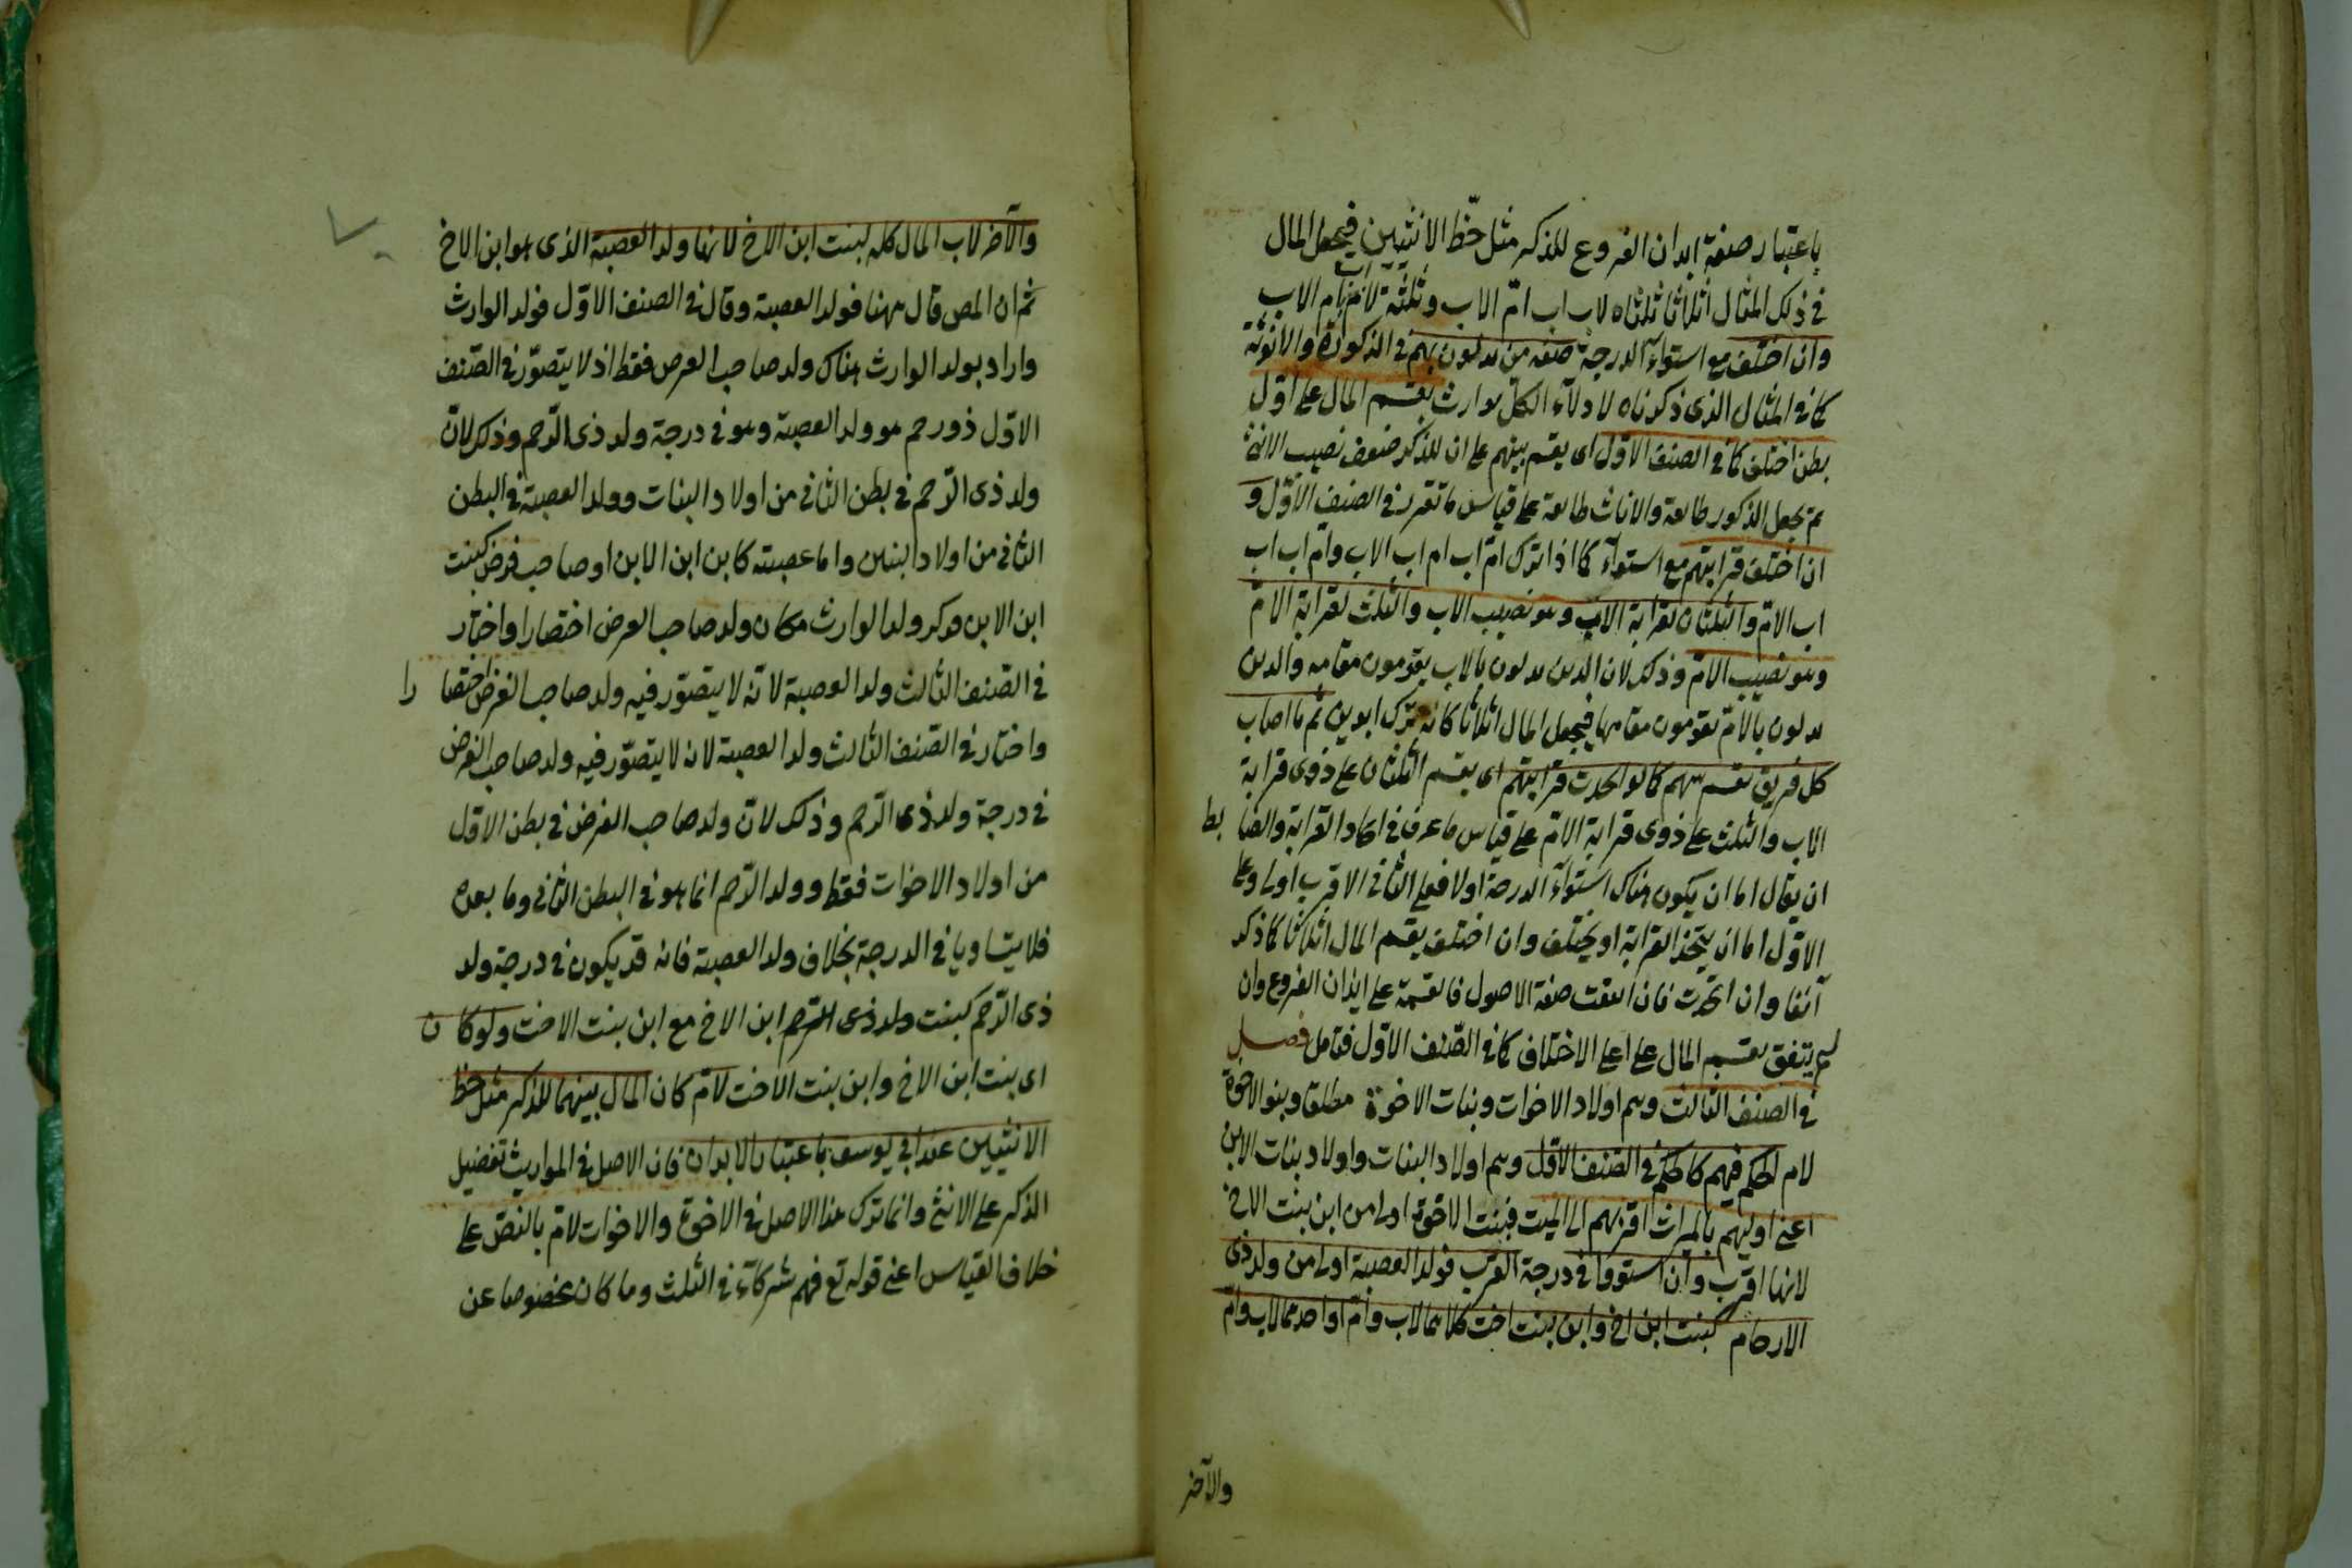 باعتبار صفة ابدان الفروع للذكر مثل حظ الانثيين فيجعل المال
في ذلك المثال أثلاثا ثلثاه لاب اب امّ الاب وثلثه لاب امّ امّ الاب
وان اختلف مع استوآء الدرجة صفة من يدلون بهم في الذكورة والانوثة
كما في المثال الذى ذكرناه لا دلآء الكلّ بوارث يقسم المال على اوّل
بطن اختلف كما في الصنف الاوّل اى يقسم بينهم على ان للذكر ضعف نصيب الانثى
ثم يجعل الذكور طائفة والاناث طائفة على قياس ما تقرر في الصنف الاوّل و
ان اختلف قرابتهم مع استوآء كما اذا ترك امّ اب ام اب الاب وامّ اب اب
اب الامّ والثلثان لقرابة الاب وهو نصيب الاب والثلث لقرابة الامّ
وهو نصيب الامّ وذلك لان الذين يدلون بالاب يقومون مقامه والذين
يدلون بالامّ يقومون مقامها فيجعل المال اثلاثا كانه ترك ابوين ثم ما اصاب
كل فريق يقسم بينهم كما لو اتحدت قرابتهم اى يقسم الثلثان على ذوى قرابة
الاب والثلث على ذوى قرابة الامّ على قياس ما عرف في اتحاد القرابة والضا بط
ان يقال اما ان يكون هناك استوآء الدرجة اولا فعلى الثاني الاقرب اولى وعلى
الاوّل اما ان يتحد القرابة او يختلف وان اختلف يقسم المال اثلاثا كما ذكر
آنفا وان اتحدت فان اتفقت صفة الاصول فالقسمة على ابدان الفروع وان
لم يتفق يقسم المال على اعلى الاختلاف كما في الصّنف الاوّل فتامل فصل
في الصنف الثالث وهم اولاد الاخوات وبنات الاخوة مطلقا وبنو الاخوة
لام الحكم فيهم كالحكم في الصّنف الاوّل وهم اولاد البنات واولاد بنات الابن
اعنى اوليهم بالميراث اقربهم الى الميت فبنت الاخت اولى من ابن بنت الاخ
لانها اقرب وان استووا في درجة القرب فولد العصبة اولى من ولد ذى
الارحام كبنت ابن اخ وابن بنت اخت كلاهما لاب وامّ او احدهما لاب وامّ
والآخر
والآخر لاب المال كله لبنت ابن الاخ لانها ولد العصبة الذى هو ابن الاخ
ثم ان المص قال ههنا فولد العصبة وقال في الصنف الاوّل فولد الوارث
واراد بولد الوارث هناك ولد صاحب الفرض فقط اذ لا يتصوّر في الصّنف
الاوّل ذو رحم هو ولد العصبة وهو في درجة ولد ذى الرّحم وذلك لانّ
ولد ذى الرّحم في بطن الثاني من اولاد البنات وولد العصبة في البطن
الثاني من اولاد البنين واما عصبته كابن ابن الابن او صاحب فرض كبنت
ابن الابن فذكر ولد الوارث مكان ولد صاحب الفرض اختصارا واختار
في الصّنف الثالث ولد العصبة لانّه لا يتصوّر فيه ولد صاحب الفرض اختصا را
واختار في الصّنف الثالث ولد العصبة لانه لا يتصوّر فيه ولد صاحب الفرض
في درجة ولد ذى الرّحم وذلك لانّ ولد صاحب الفرض في بطن الاوّل
من اولاد الاخوات فقط وولد الرّحم انما هو في البطن الثاني وما بعده
فلا يتساويا في الدرجة بخلاف ولد العصبة فانه قد يكون في درجة ولد
ذى الرّحم كبنت ولد ذى الرّحم ابن الاخ مع ابن بنت الاخت ولو كا ن
اى بنت ابن الاخ وابن بنت الاخت لامّ كان المال بينهما للذكر مثل حظ
الانثيين عند ابي يوسف باعتبار الابدان فان الاصل في المواريث تفضيل
الذكر على الانثى وانما ترك هذا الاصل في الاخوة والاخوات لامّ بالنصّ على
خلاف القياس اعنى قوله تع فهم شركآء في الثلث وما كان مخصوصا عن